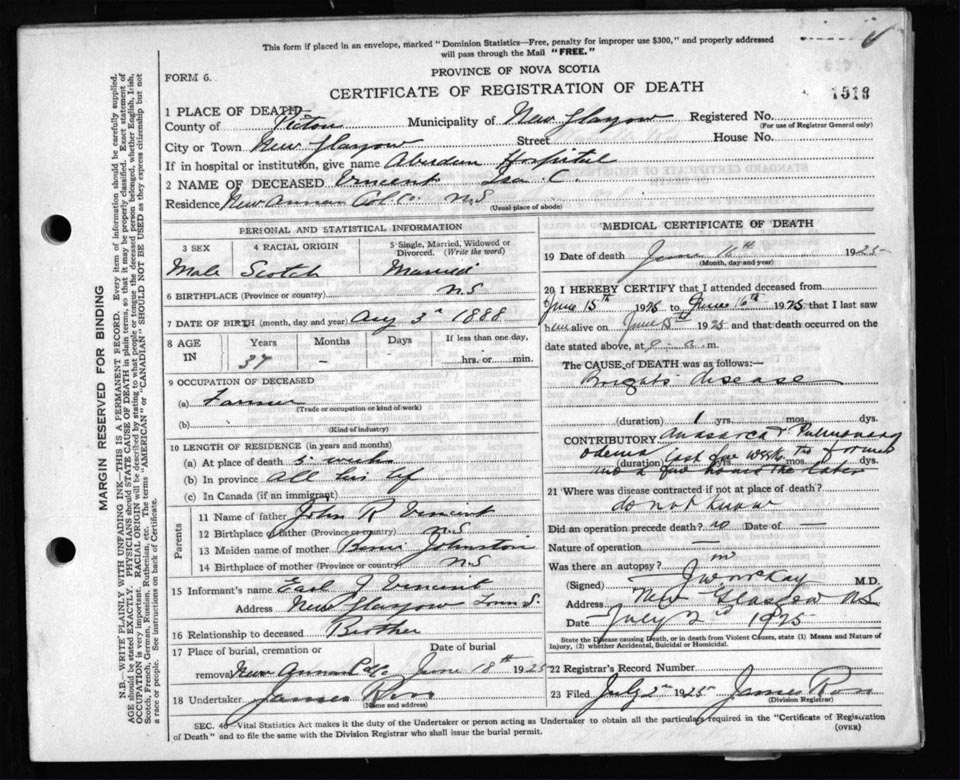 This form if placed in an envelope, marked "Dominion Statistics—Free, penalty for improper use $300," and properly addressed
will pass through the Mail "FREE."
PROVINCE OF NOVA SCOTIA
FORM 6.
CERTIFICATE OF REGISTRATION OF DEATH
1513
1 PLACE OF DEATH—
County of Pictou Municipality of New Glasgow Registered No.
(For use of Registrar General only)
City or Town New Glasgow Street House No.
If in hospital or institution, give name Aberdeen Hospital
2 NAME OF DECEASED Vincent Isa. C.
Residence New Annan Col. Co. N.S
(Usual place of abode)
PERSONAL AND STATISTICAL INFORMATION
3 SEX 4 RACIAL ORIGIN 5 Single, Married, Widowed or Divorced. (Write the word)
Male Scotch Married
6 BIRTHPLACE (Province or country) N.S
7 DATE OF BIRTH (month, day and year) Aug 3 1888
8 AGE IN Years Months Days If less than one day,
37 – hrs. or min.
9 OCCUPATION OF DECEASED
(a) Farmer
(Trade or occupation or kind of work)
(b)
(Kind of industry)
10 LENGTH OF RESIDENCE (in years and months)
(a) At place of death 5 weeks
(b) In province All his life
(c) In Canada (if an immigrant)
Parents
11 Name of father John R Vincent
12 Birthplace of father (Province or country) N.S
13 Maiden name of mother Johnston
14 Birthplace of mother (Province or country) N.S
15 Informant's name Earl J Vincent
Address New Glasgow
16 Relationship to deceased Brother
17 Place of burial, cremation or removal Date of burial
New Annan June 18th 1925
18 Undertaker James Ross
(Name and address)
MEDICAL CERTIFICATE OF DEATH
19 Date of death June 16th 1925
(Month, day and year)
20 I HEREBY CERTIFY that I attended deceased from
June 15th 1925 to June 16th 1925 that I last saw
him alive on June 15th 1925 and that death occurred on the
date stated above, at a. m.
The CAUSE of DEATH was as follows:—
Brights disease
(duration) 1 yrs. mos. dys.
CONTRIBUTORY Anasarca & Pulmonary
odema last few weeks the former
(duration) yrs. mos. dys.
and a few hours the later
21 Where was disease contracted if not at place of death?
do not know
Did an operation precede death? no Date of —
Nature of operation —
Was there an autopsy?
(Signed) J W McKay M.D.
Address New Glasgow N.S.
Date July 2nd 1925
State the Disease causing Death, or in death from Violent Causes, state (1) Means and Nature of
Injury, (2) whether Accidental, Suicidal or Homicidal.
22 Registrar's Record Number
23 Filed July 2nd 1925 James Ross
(Division Registrar)
SEC. 40 Vital Statistics Act makes it the duty of the Undertaker or person acting as Undertaker to obtain all the particulars required in the "Certificate of Registration
of Death" and to file the same with the Division Registrar who shall issue the burial permit.
(OVER)
MARGIN RESERVED FOR BINDING
N.B.—WRITE PLAINLY WITH UNFADING INK—THIS IS A PERMANENT RECORD. Every item of information should be carefully supplied.
AGE should be stated EXACTLY. PHYSICIANS should STATE CAUSE OF DEATH in plain terms, so that it may be properly classified. Exact statement of
OCCUPATION is very important. RACIAL ORIGIN will be described by stating to what people or tongue the deceased person belonged, whether English, Irish,
Scotch, French, German, Russian, Ruthenian, etc. The terms "AMERICAN" or "CANADIAN" SHOULD NOT BE USED as they express citizenship but not
a race or people. See instructions on back of Certificate.